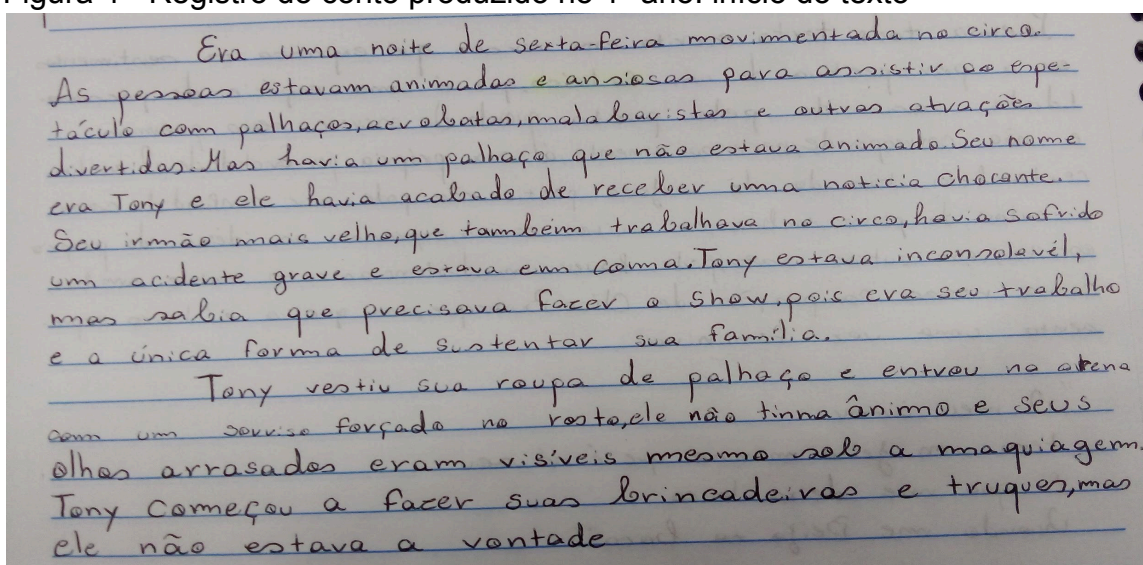 Era uma noite de sexta-feira movimentada no circo.
As pessoas estavam animadas e ansiosas para assistir ao espe-
táculo com palhaços, acrobatas, malabaristas e outras atuações
divertidas. Mas havia um palhaço que não estava animado. Seu nome
era Tony e ele havia acabado de receber uma noticia chocante.
Seu irmão mais velho, que também trabalhava no circo, havia sofrido
um acidente grave e estava em coma. Tony estava inconsolavél,
mas sabia que precisava fazer o show, pois era seu trabalho
e a única forma de sustentar sua família.
Tony vestiu sua roupa de palhaço e entrou na arena
com um sorriso forçado no rosto, ele não tinha ânimo e seus
olhos arrasados eram visíveis mesmo sob a maquiagem.
Tony começou a fazer suas brincadeiras e truques, mas
ele não estava a vontade